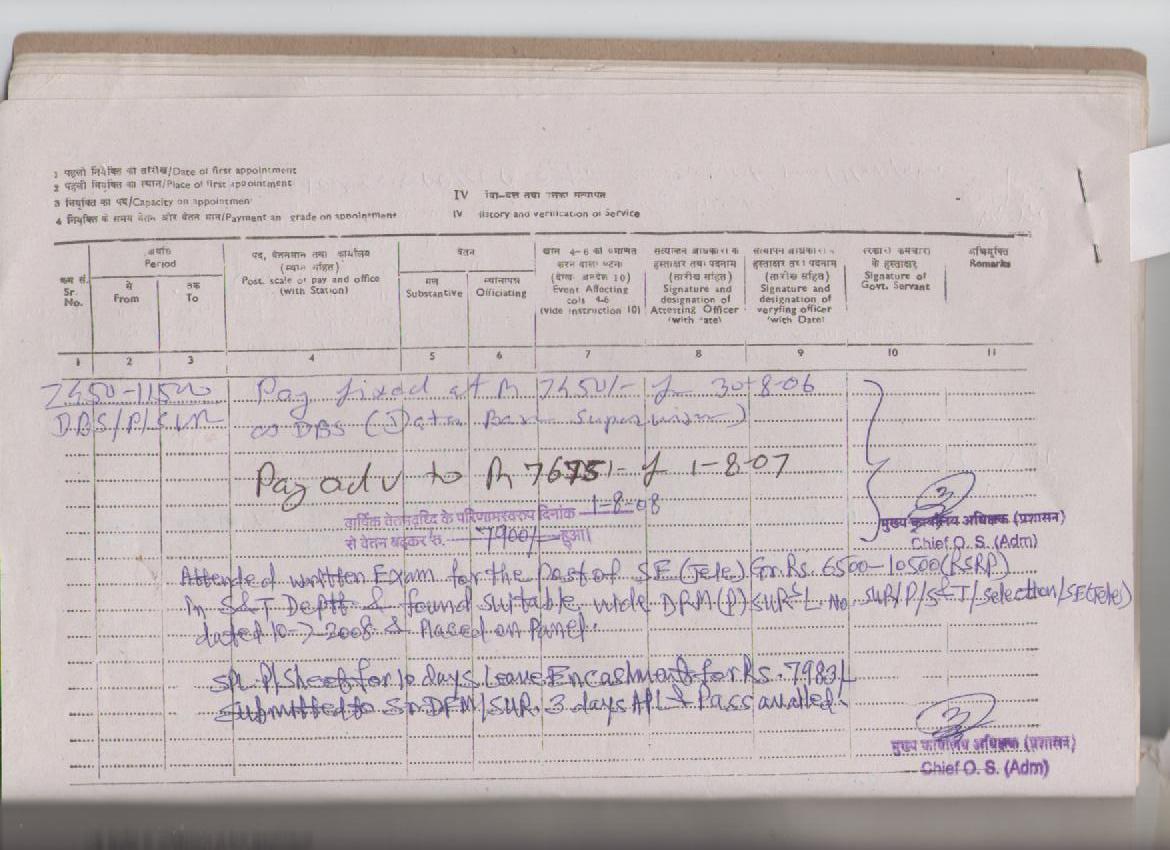 1 पहली नियुक्ति की तारीख/Date of first appointment
2 पहली नियुक्ति का स्थान/Place of first appointment
3 नियुक्ति का पद/Capacity on appointmen
4 नियुक्ति के समय वेतन और वेतन मान/Payment an grade on appointment
IV सेवा-वृत्त तथा उसका सत्यापन
IV History and verification of Service
क्रम सं.
Sr.
No.
अवधि
Period
से
From
तक
To
पद, वेतनमान तथा कार्यालय
(स्थान सहित)
Post, scale of pay and office
(with Station)
वेतन
मूल
Substantive
स्थानापन्न
Officiating
Event Affecting
cols 4-6
(vide instruction 10)
Signature and
designation of
Attesting Officer
(with date)
Signature and
designation of
veryfing officer
(with Date)
सरकारी कर्मचारी
के हस्ताक्षर
Signature of
Govt. Servant
अभियुक्ति
Remarks
1 2 3 4 5 6 7 8 9 10 11
7450-11500 Pay fixed at Rs 7450/- f 30-8-06
DBS/P/SUR as DBS (Data Base Supervisor)
Pay adv to Rs 7675/- f 1-8-07
वार्षिक वेतनवृध्दि के परिणामस्वरुप दिनांक 1-8-08
से वेतन बढ़कर रु. 7900/- हुआ।
मुख्य कार्यालय अधिक्षक (प्रशासन)
Chief O. S. (Adm)
Attended written Exam for the Post of SE (Tele) Gr. Rs. 6500-10500 (RSRP)
in S&T Deptt & found suitable vide DRM(P) SUR'S L. No. SUR/P/S&T/Selection/SE(Tele)
dated 10-7-2008 & Placed on Panel.
SPL. P/Sheet for 10 days Leave Encashment for Rs. 7983/-
Submitted to Sr. DFM/SUR. 3 days APL & Pass availed.
मुख्य कार्यालय अधिक्षक (प्रशासन)
Chief O. S. (Adm)